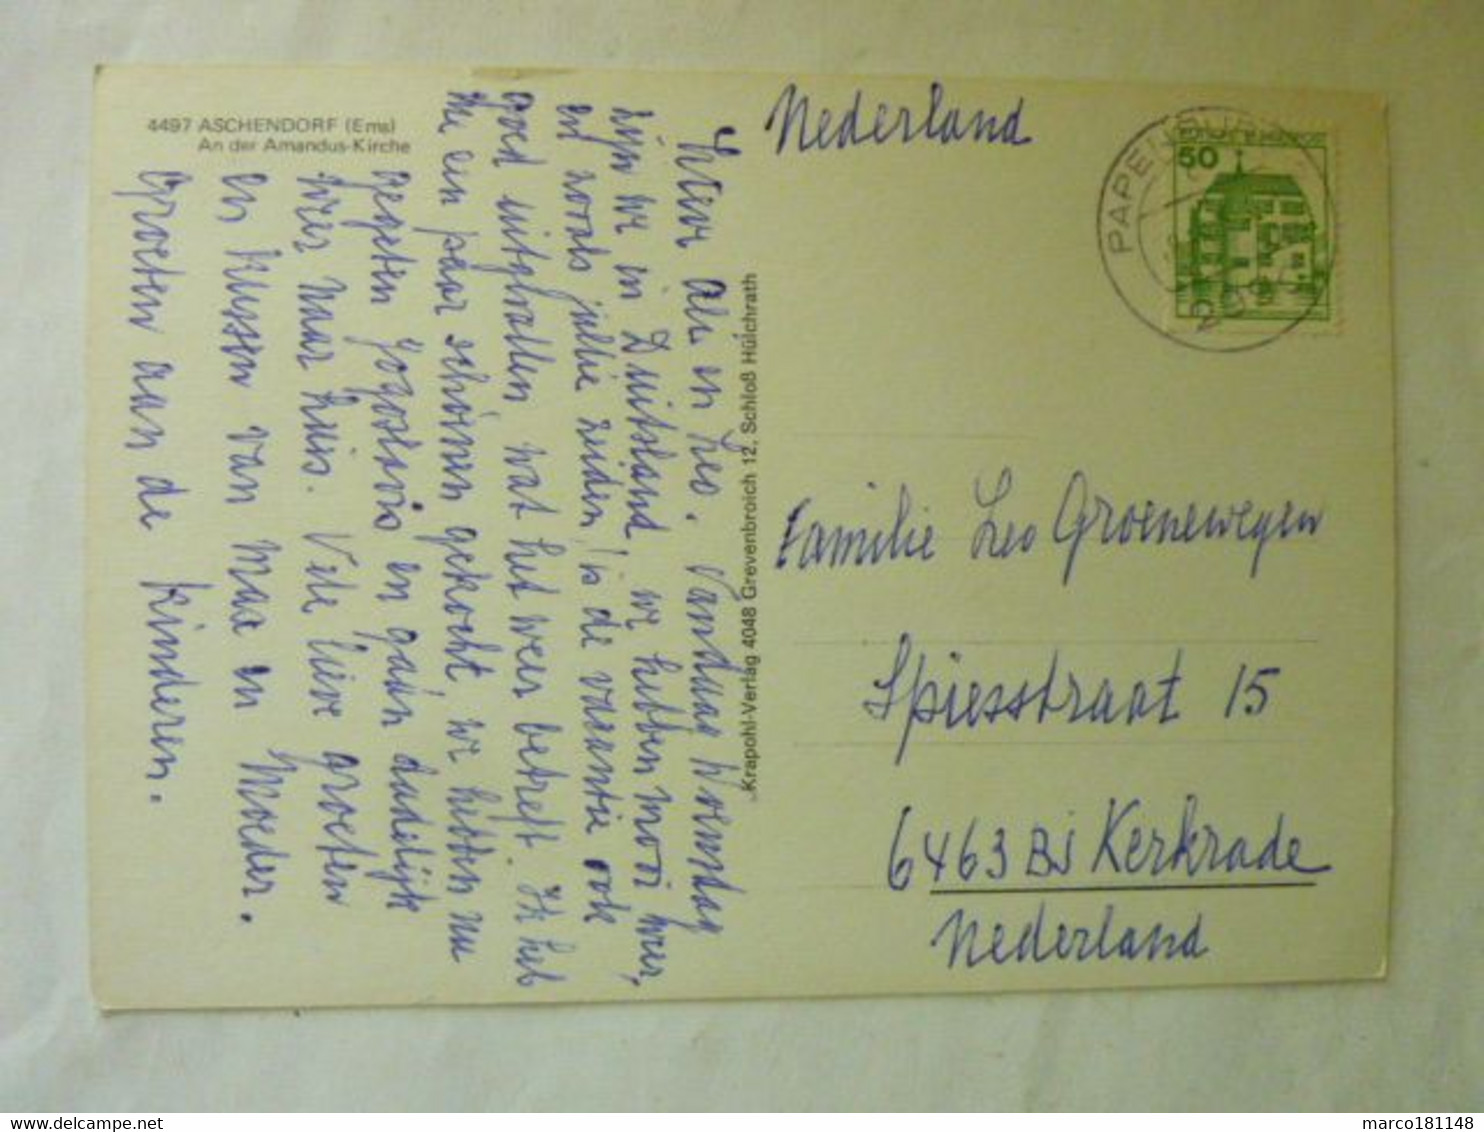 4497 ASCHENDORF (Ems)
An der Amandus-Kirche
Lieve Ali en Leo. Vandaag Woensdag
zijn we in Duitsland, we hebben mooi weer,
en zoals jullie zeiden is de vakantie ook
goed uitgevallen wat het weer betreft. Ik heb
me een paar schoenen gekocht, we hebben nu
gegeten Jogoslavis en gaan dadelijk
weer naar huis. Vele lieve groeten
en kussen van Max en Moeder.
Groeten aan de kinderen.
Krapohl-Verlag 4048 Grevenbroich 12, Schloß Hülchrath
Nederland
50
PAPENBURG
Familie Leo Groenewegen
Spiesstraat 15
6463 BJ Kerkrade
Nederland
delcampe.net
marco181148